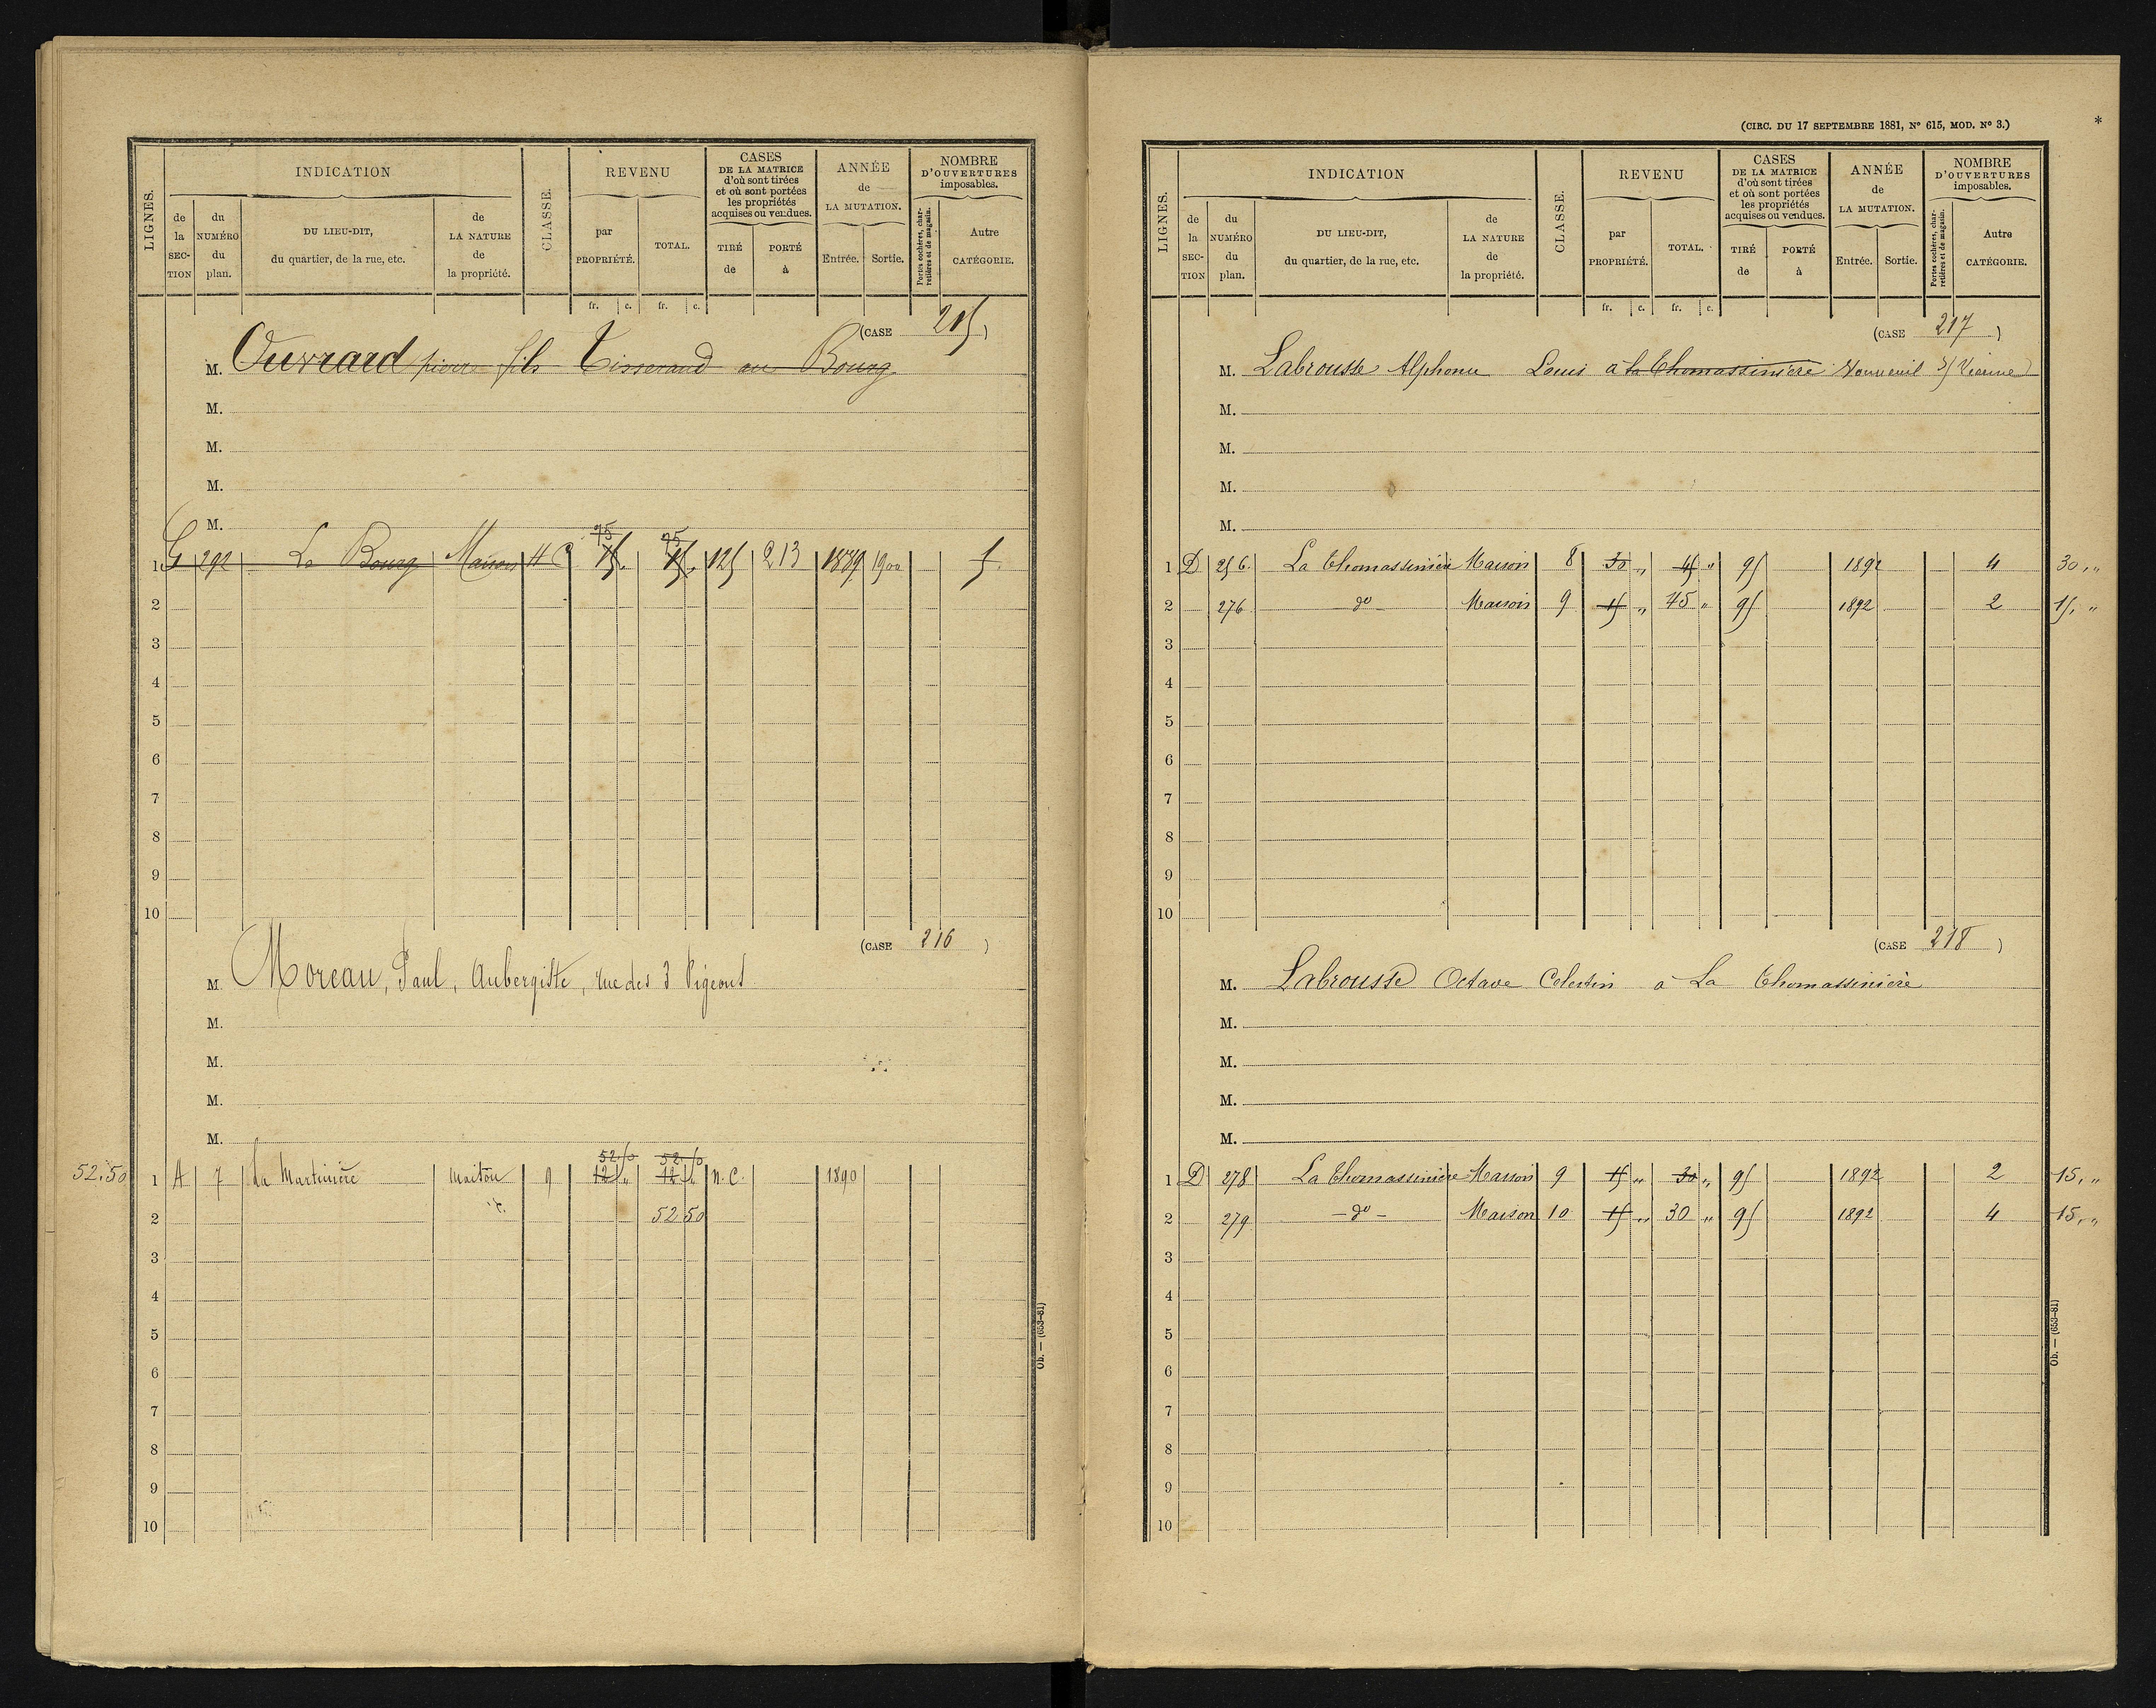 LIGNES.
INDICATION
de la SECTION
du NUMÉRO du plan.
DU LIEU-DIT, du quartier, de la rue, etc.
de LA NATURE de la propriété.
CLASSE.
REVENU
par PROPRIÉTÉ.
TOTAL.
CASES DE LA MATRICE d'où sont tirées et où sont portées les propriétés acquises ou vendues.
TIRÉ de
PORTÉ à
ANNÉE de LA MUTATION.
Entrée.
Sortie.
NOMBRE D'OUVERTURES imposables.
Portes cochères, charretières et de magasin.
Autre CATÉGORIE.
fr. c. fr. c.
(CASE 215)
M. Ouvrard pierre fils Tisserand au Bourg
M.
M.
M.
M.
75 75
1 G 292 Le Bourg Maison 4 15 15 125 213 1889 1900 5
2
3
4
5
6
7
8
9
10
(CASE 216)
M. Moreau, Paul, Aubergiste, rue des 3 Pigeons
M.
M.
M.
M.
52.50 52.50
52.50 1 A 7 La Martinière maison 9 12 " 12 " n.c. 1890
2 52 50
3
4
5
6
7
8
9
10
Ob. — (653-81)
(CIRC. DU 17 SEPTEMBRE 1881, N° 615, MOD. N° 3.)
*
LIGNES.
INDICATION
de la SECTION
du NUMÉRO du plan.
DU LIEU-DIT, du quartier, de la rue, etc.
de LA NATURE de la propriété.
CLASSE.
REVENU
par PROPRIÉTÉ.
TOTAL.
CASES DE LA MATRICE d'où sont tirées et où sont portées les propriétés acquises ou vendues.
TIRÉ de
PORTÉ à
ANNÉE de LA MUTATION.
Entrée.
Sortie.
NOMBRE D'OUVERTURES imposables.
Portes cochères, charretières et de magasin.
Autre CATÉGORIE.
fr. c. fr. c.
(CASE 217)
M. Labrousse Alphonse Louis à la Thomassinière Vouneuil s/ Vienne
M.
M.
M.
M.
1 D 256 La Thomassinière Maison 8 30 " 45 " 95 1892 4 30, "
2 276 do Maison 9 15 " 45 " 95 1892 2 15, "
3
4
5
6
7
8
9
10
(CASE 218)
M. Labrousse Octave Celestin à La Thomassinière
M.
M.
M.
M.
1 D 278 La Thomassinière Maison 9 15 " 30 " 95 1892 2 15, "
2 279 - do - Maison 10 15 " 30 " 95 1892 4 15, "
3
4
5
6
7
8
9
10
Ob. — (653-81)